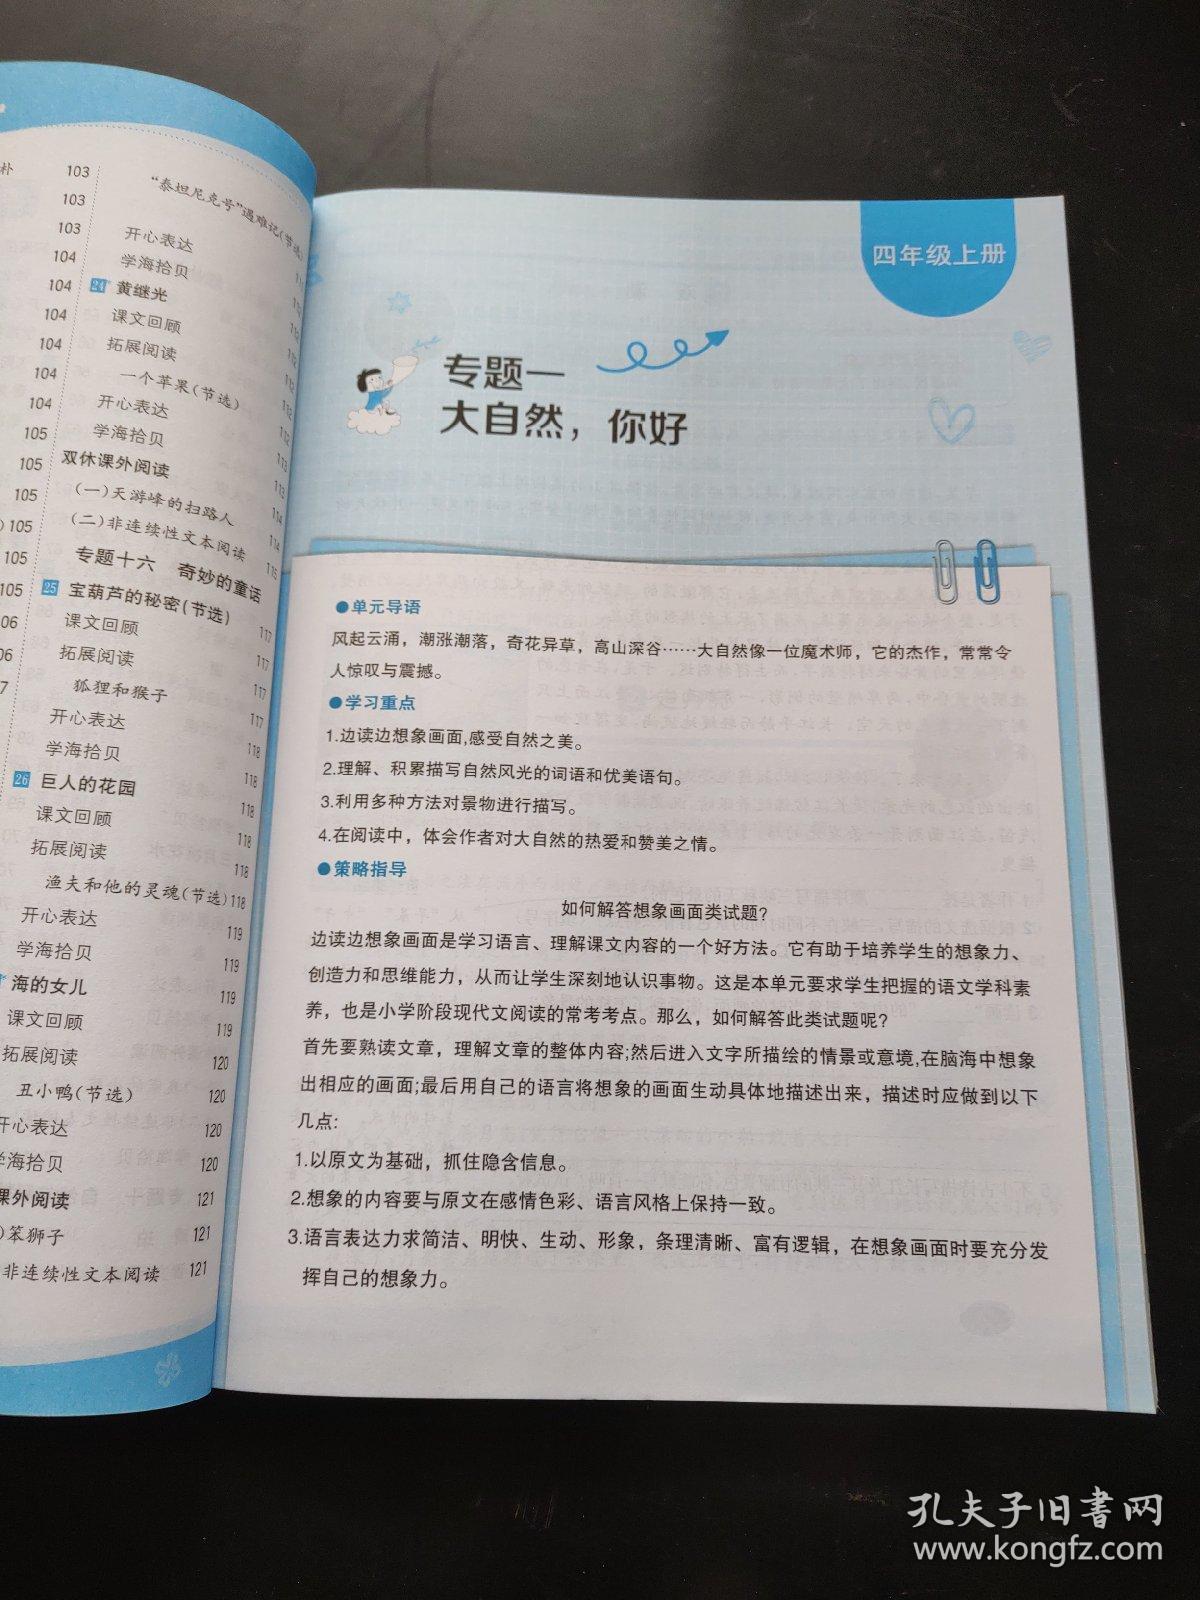 朴 103
103
103
104
104
104
104
104
104
105
105
105
105
105
105
06
06
7
“泰坦尼克号”遇难记(节选)
开心表达
学海拾贝
24 黄继光
课文回顾 112
拓展阅读 112
一个苹果(节选) 112
开心表达 112
学海拾贝 112
双休课外阅读 113
(一)天游峰的扫路人 113
(二)非连续性文本阅读 114
专题十六 奇妙的童话
25 宝葫芦的秘密(节选) 117
课文回顾 117
拓展阅读 117
狐狸和猴子 117
开心表达 118
学海拾贝 118
26 巨人的花园 118
课文回顾 118
拓展阅读 118
渔夫和他的灵魂(节选) 118
开心表达 119
学海拾贝 119
海的女儿 119
课文回顾 119
拓展阅读 120
丑小鸭(节选) 120
开心表达 120
学海拾贝 120
课外阅读 121
)笨狮子 121
非连续性文本阅读 121
四年级上册
专题一
大自然，你好
●单元导语
风起云涌，潮涨潮落，奇花异草，高山深谷……大自然像一位魔术师，它的杰作，常常令
人惊叹与震撼。
●学习重点
1.边读边想象画面,感受自然之美。
2.理解、积累描写自然风光的词语和优美语句。
3.利用多种方法对景物进行描写。
4.在阅读中，体会作者对大自然的热爱和赞美之情。
●策略指导
如何解答想象画面类试题?
边读边想象画面是学习语言、理解课文内容的一个好方法。它有助于培养学生的想象力、
创造力和思维能力，从而让学生深刻地认识事物。这是本单元要求学生把握的语文学科素
养，也是小学阶段现代文阅读的常考考点。那么，如何解答此类试题呢?
首先要熟读文章，理解文章的整体内容;然后进入文字所描绘的情景或意境,在脑海中想象
出相应的画面;最后用自己的语言将想象的画面生动具体地描述出来，描述时应做到以下
几点:
1.以原文为基础，抓住隐含信息。
2.想象的内容要与原文在感情色彩、语言风格上保持一致。
3.语言表达力求简洁、明快、生动、形象，条理清晰、富有逻辑，在想象画面时要充分发
挥自己的想象力。
孔夫子旧书网
www.kongfz.com